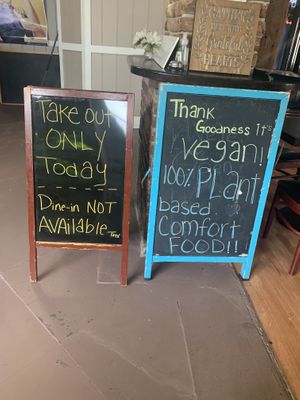 Take out
ONLY
Today
Dine-in NOT
AVAilable
Thank
Goodness It's
Vegan!
100% PLant
based
Comfort
FOOD!!
GATHER
HERE with
grateful
HEARTS